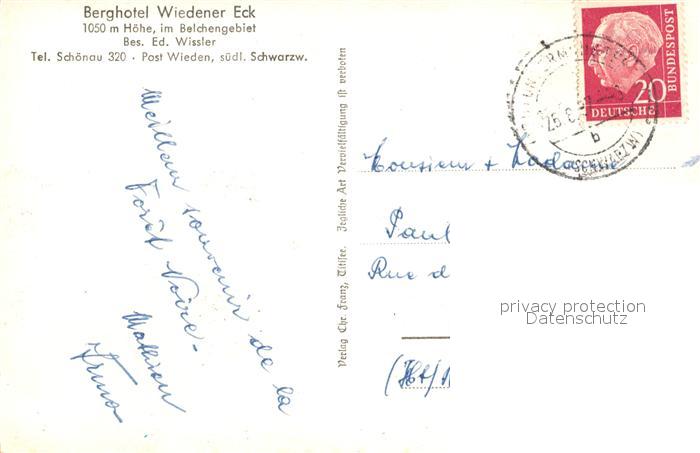 Berghotel Wiedener Eck
1050 m Höhe, im Belchengebiet
Bes. Ed. Wissler
Tel. Schönau 320 · Post Wieden, südl. Schwarzw.
Meilleur souvenir de la
Forêt Noire -
Mathieu
Irma
Verlag Chr. Franz, Titisee. Jegliche Art Vervielfältigung ist verboten
20
DEUTSCHE
BUNDESPOST
b
Monsieur + Madame
Paul
Rue d
privacy protection
Datenschutz